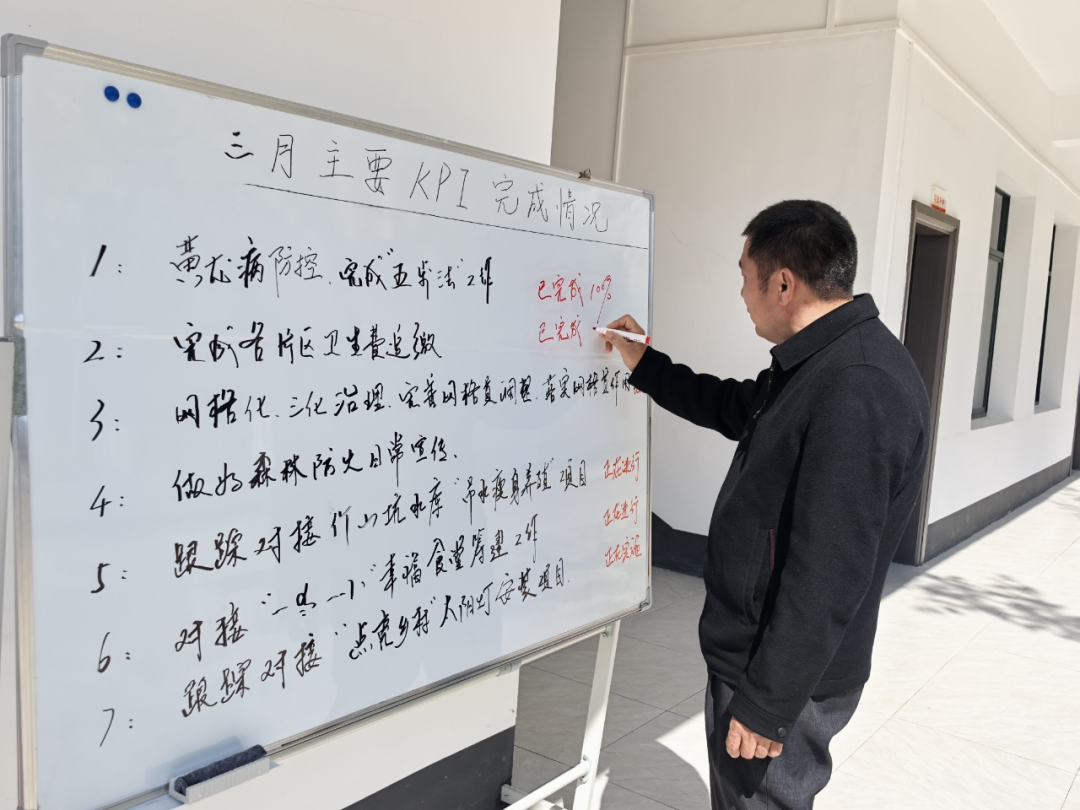 三月主要KPI完成情况
1: 黄龙病防控、完成"五步法"工作 已完成 100%
2: 完成各片区卫生费追缴 已完成
3: 网格化、三化治理、完善网格员调整、落实网格员作用
4: 做好森林防火日常宣传.
5: 跟踪对接竹山坑水库"吊水瘦身养殖"项目 正在进行
6: 对接"一点一小"幸福食堂筹建工作 正在进行
7: 跟踪对接"点亮乡村"太阳灯安装项目. 正在实施